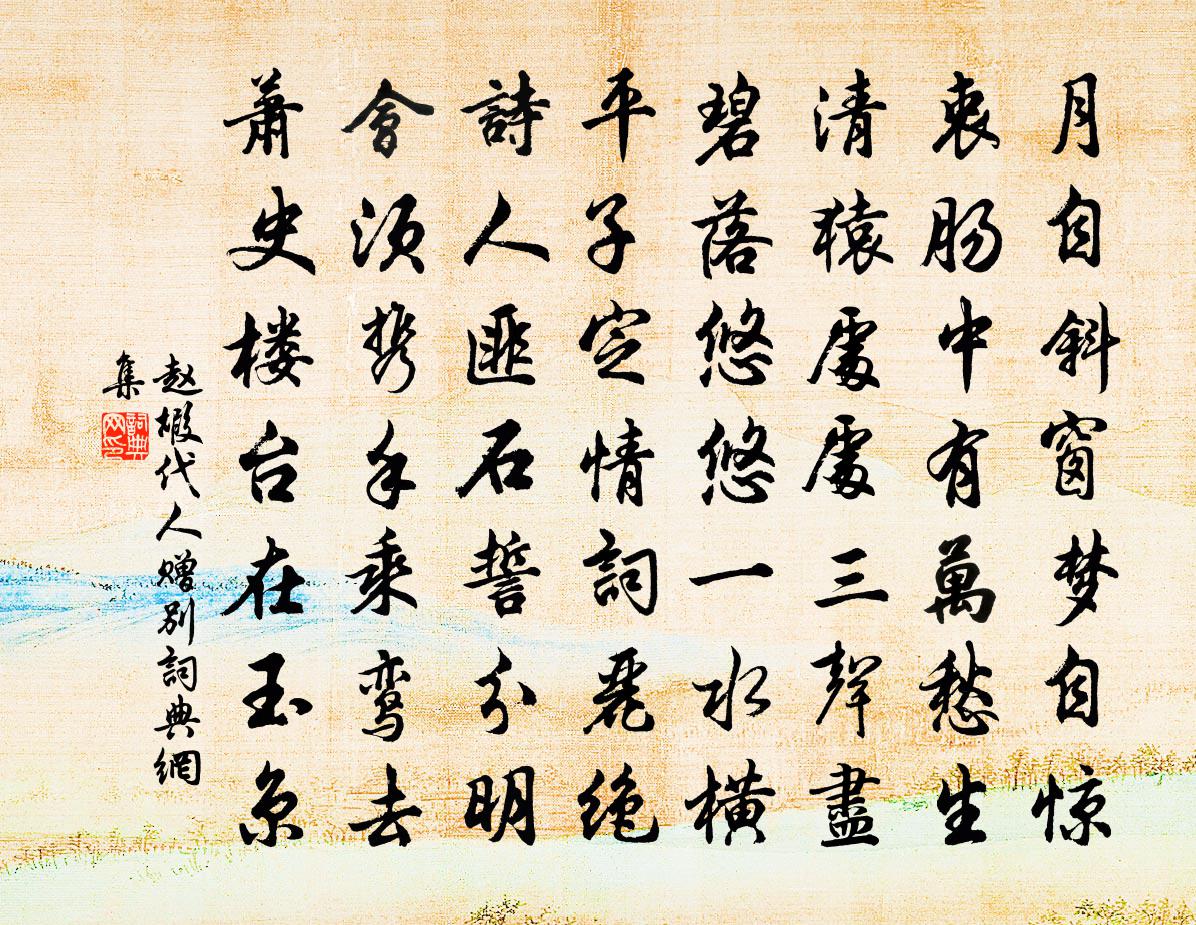 月自斜窗梦自惊
衷肠中有萬愁生
清猿處處三聲盡
碧落悠悠一水橫
平子定情詞麗绝
詩人匪石誓分明
會须携手乘鸾去
萧史楼台在玉京
赵嘏代人赠别詞典網
集
詞典
网印